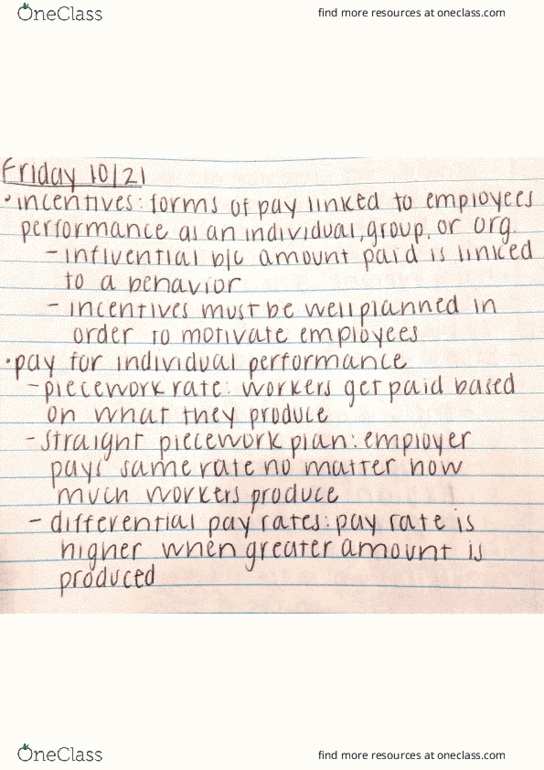 OneClass
find more resources at oneclass.com
Friday 10/21
• incentives: forms of pay linked to employees
performance as an individual, group, or org.
- influential b/c amount paid is linked
to a behavior
- incentives must be well planned in
order to motivate employees
• pay for individual performance
- piecework rate: workers get paid based
on what they produce
- straight piecework plan: employer
pays same rate no matter how
much workers produce
- differential pay rates: pay rate is
higher when greater amount is
produced
OneClass
find more resources at oneclass.com